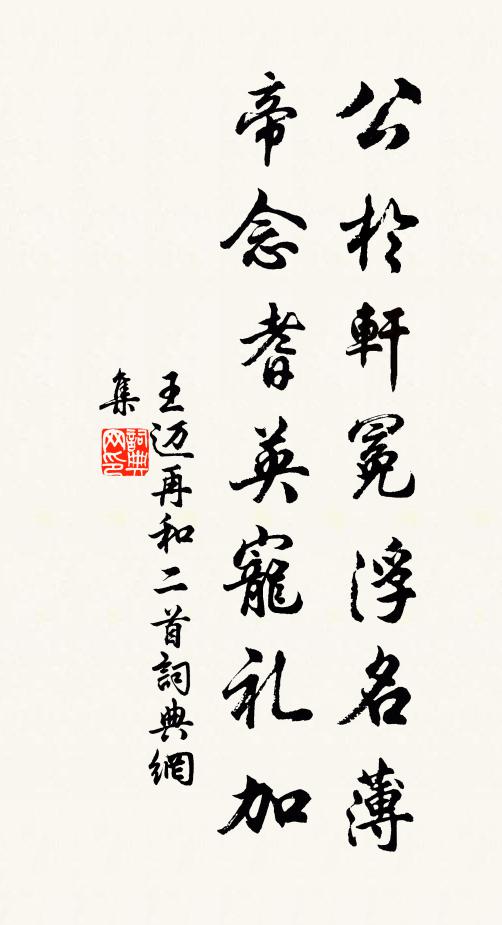 公於軒冕浮名薄
帝念耆英寵礼加
王迈再和二首詞典網
集
詞典网印